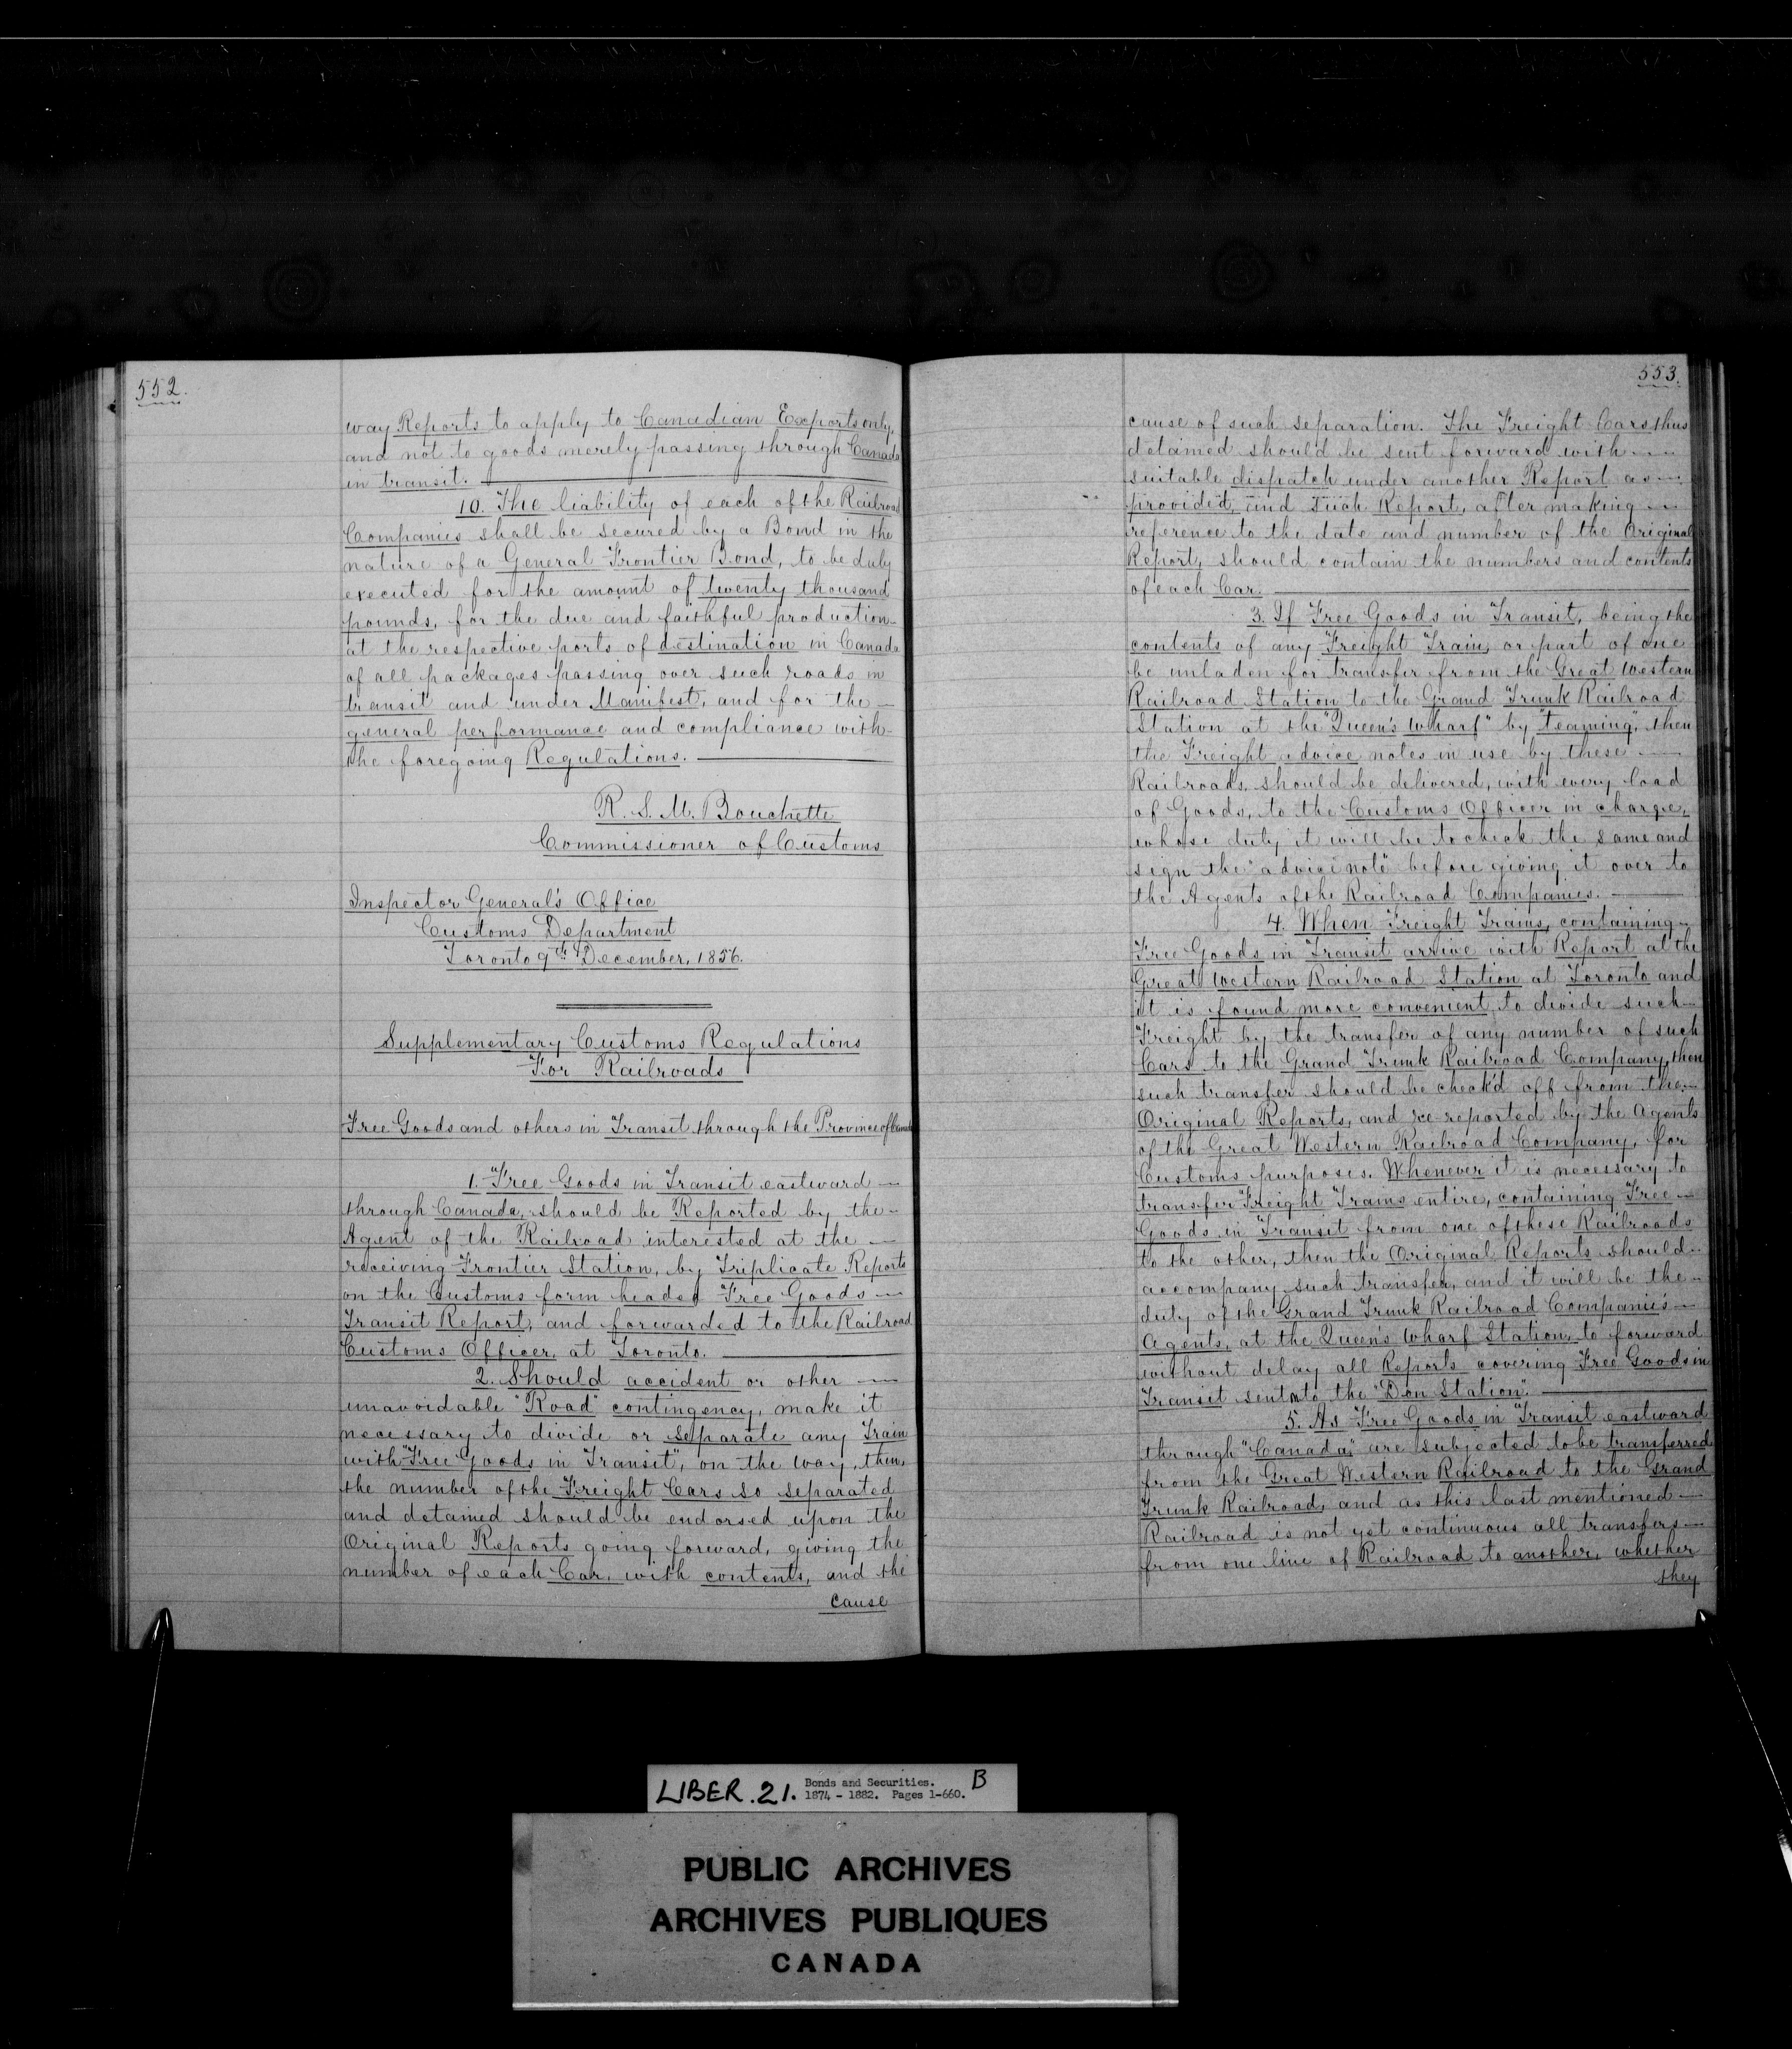 552.
way Reports to apply to Canadian Exports only,
and not to goods merely passing through Canada
in transit.
10. The liability of each of the Railroad
Companies shall be secured by a Bond in the
nature of a General Frontier Bond, to be duly
executed for the amount of twenty thousand
pounds, for the due and faithful production
at the respective ports of destination in Canada
of all packages passing over such roads in
transit and under Manifest, and for the
general performance and compliance with
the foregoing Regulations.
R. S. M. Bouchette
Commissioner of Customs
Inspector General's Office
Customs Department
Toronto 9th December, 1856.
Supplementary Customs Regulations
For Railroads
Free Goods and others in Transit through the Province of Canada
1. Free Goods in Transit eastward
through Canada, should be Reported by the
Agent of the Railroad interested at the
receiving Frontier Station, by Triplicate Reports
on the Customs form headed Free Goods
Transit Report, and forwarded to the Railroad
Customs Officer, at Toronto.
2. Should accident or other
unavoidable "Road" contingency, make it
necessary to divide or separate any Train
with "Free Goods in Transit", on the way, then,
the number of the Freight Cars so separated
and detained should be endorsed upon the
Original Reports going forward, giving the
number of each Car, with contents, and the
cause
553.
cause of such separation. The Freight Cars thus
detained should be sent forward with
suitable dispatch under another Report as
provided, and such Report, after making
reference to the date and number of the Original
Report, should contain the numbers and contents
of each Car.
3. If Free Goods in Transit, being the
contents of any Freight Train, or part of one
be unladen for transfer from the Great Western
Railroad Station to the Grand Trunk Railroad
Station at the "Queen's Wharf" by "teaming", then
the Freight advice notes in use by these
Railroads, should be delivered, with every load
of Goods, to the Customs Officer in charge,
whose duty it will be to check the same and
sign the "advice note" before giving it over to
the Agents of the Railroad Companies.
4. When Freight Trains, containing
Free Goods in Transit arrive with Report at the
Great Western Railroad Station at Toronto and
it is found more convenient, to divide such
Freight by the transfer of any number of such
Cars to the Grand Trunk Railroad Company, then
such transfer should be check'd off from the
Original Reports, and re-reported by the Agents
of the Great Western Railroad Company, for
Customs purposes. Whenever it is necessary to
transfer Freight Trains entire, containing Free
Goods in Transit from one of these Railroads
to the other, then the Original Reports should
accompany such transfer, and it will be the
duty of the Grand Trunk Railroad Companies
Agents, at the Queen's Wharf Station, to forward
without delay all Reports covering Free Goods in
Transit sent to the "Don Station".
5. As Free Goods in Transit eastward
through "Canada", are subjected to be transferred
from the Great Western Railroad to the Grand
Trunk Railroad, and as this last mentioned
Railroad is not yet continuous all transfers
from one line of Railroad to another, whether
they
LIBER. 21. Bonds and Securities. B
1874 - 1882. Pages 1-660.
PUBLIC ARCHIVES
ARCHIVES PUBLIQUES
CANADA